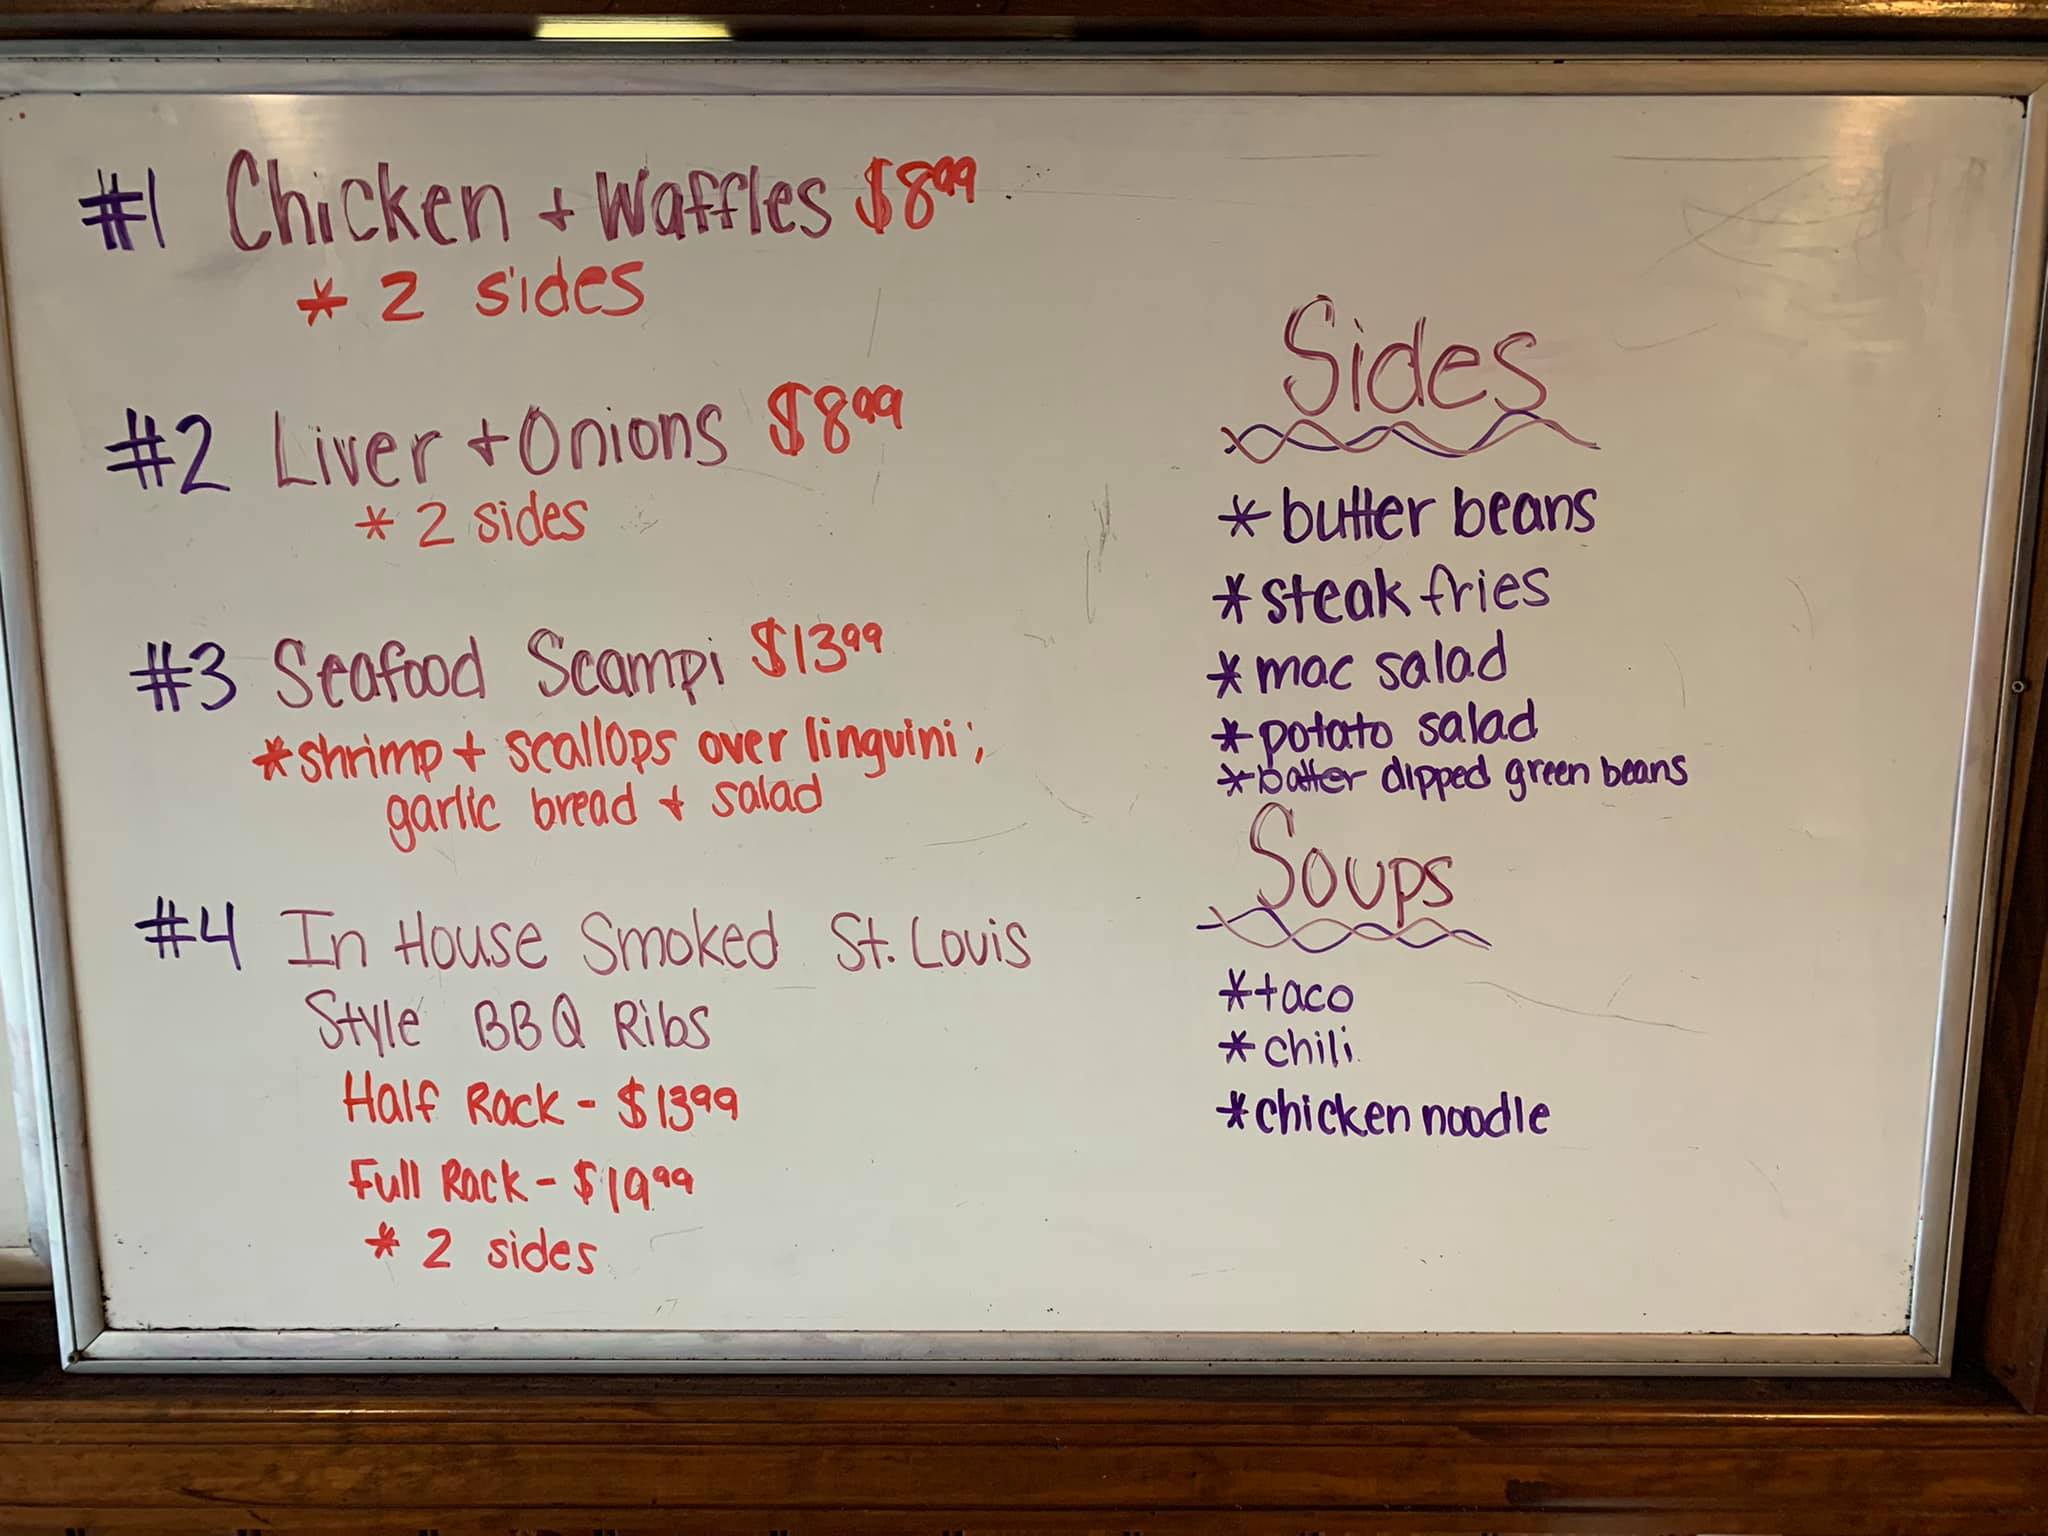 #1 Chicken + Waffles $8.99
* 2 sides
#2 Liver + Onions $8.99
* 2 sides
#3 Seafood Scampi $13.99
*shrimp + scallops over linguini;
garlic bread + salad
#4 In House Smoked St. Louis
Style BBQ Ribs
Half Rack - $13.99
Full Rack - $19.99
* 2 sides
Sides
* butter beans
* steak fries
* mac salad
* potato salad
* batter dipped green beans
Soups
* taco
* chili
* chicken noodle